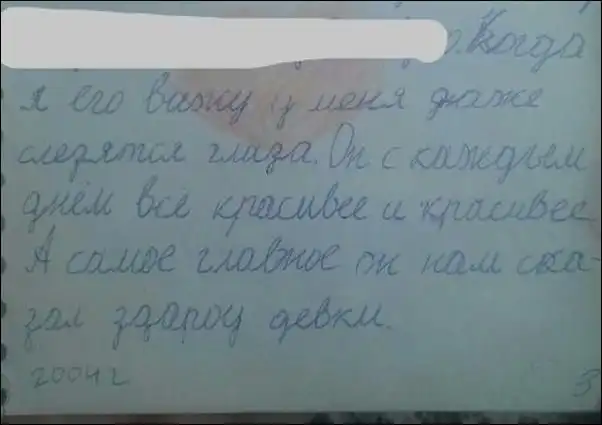 Когда
я его важу у меня даже
слезятся глаза. Он с каждым
днём всё красивее и красивее
А самое главное он нам ска-
зал здароу девки.
2004 г
3